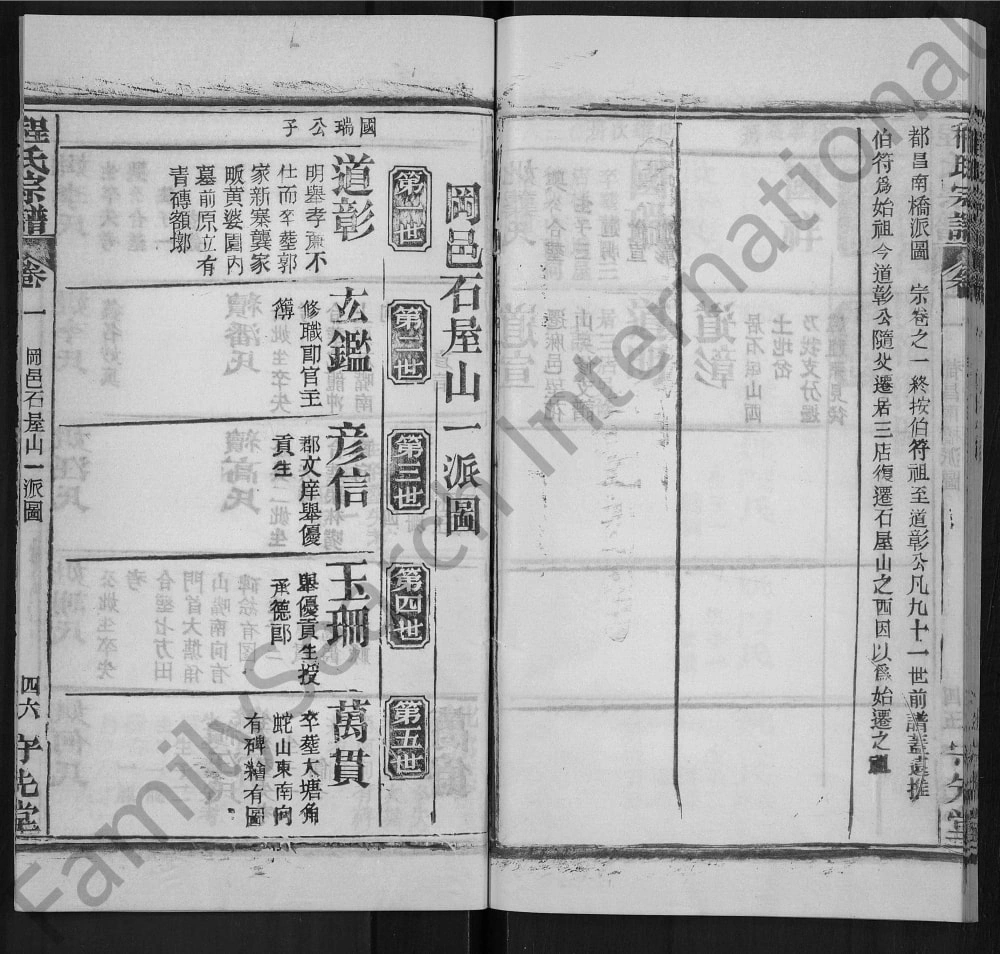 都昌南橋派圖 宗卷之一終按伯符祖至道彰公凡九十一世前譜蓋遺推
伯符爲始祖今道彰公隨父遷居三店復遷石屋山之西因以爲始遷之祖
岡邑石屋山一派圖
第一世
第二世
第三世
第四世
第五世
國瑞公子
道彰
明舉孝廉不
仕而卒葬郭
家新寨龔家
畈黄婆園内
墓前原立有
青磚額塜
玄鑑
修職郎官主
簿
彦信
郡文庠舉優
貢生
玉珊
舉優貢生授
承德郎
萬貫
卒葬大塘角
蛇山東南向
有碑繪有圖
程氏宗譜
卷一
岡邑石屋山一派圖
四六
FamilySearch International